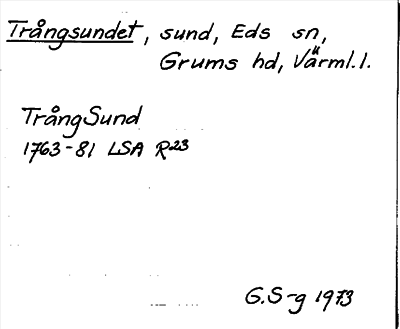 Trångsundet, sund, Eds sn,
Grums hd, Värml.l.
TrångSund
1763-81 LSA R23
G.S-g 1973